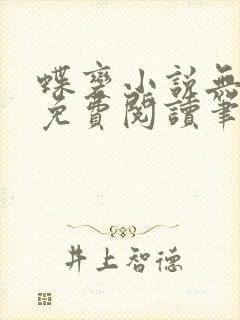 蝶变小说無
免費閱讀筆
井上智德